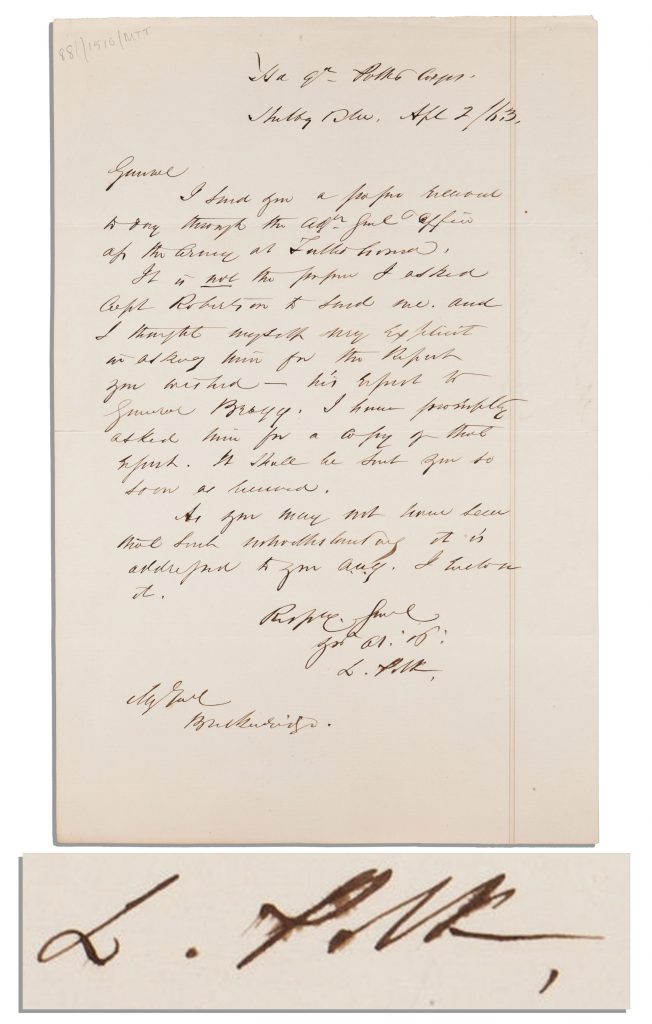 881/1515/MTT
Hd Qrs Polks Corps.
Shelby Ville, Apl 2/63.
General
I send you a paper received
to day through the adjts Genl Office
of the Army at Tullahoma.
It is not the paper I asked
Capt Robertson to send me. and
I thought myself very explicit
in asking him for the Report
you wished — his report to
General Bragg. I have promptly
asked him for a copy of that
report. It shall be sent you so
soon as received.
As you may not have seen
that sent notwithstanding it is
addressed to your I enclose
it.
Respy. Genl
L. Polk,
Maj Genl
Breckenridge.
L. Polk,